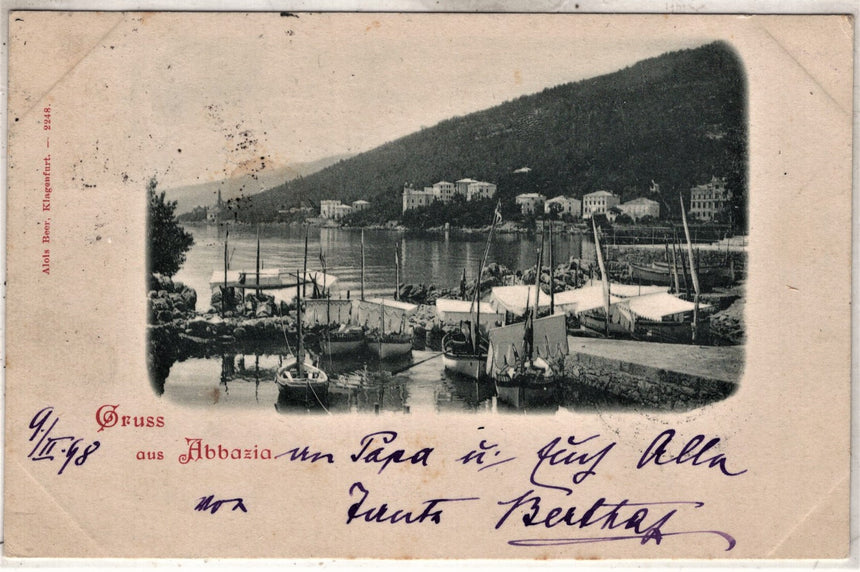 Alois Beer, Klagenfurt. — 2248.
Gruss
aus Abbazia
9./II.98
an Papa u. Euch Alle
von Tante Bertha